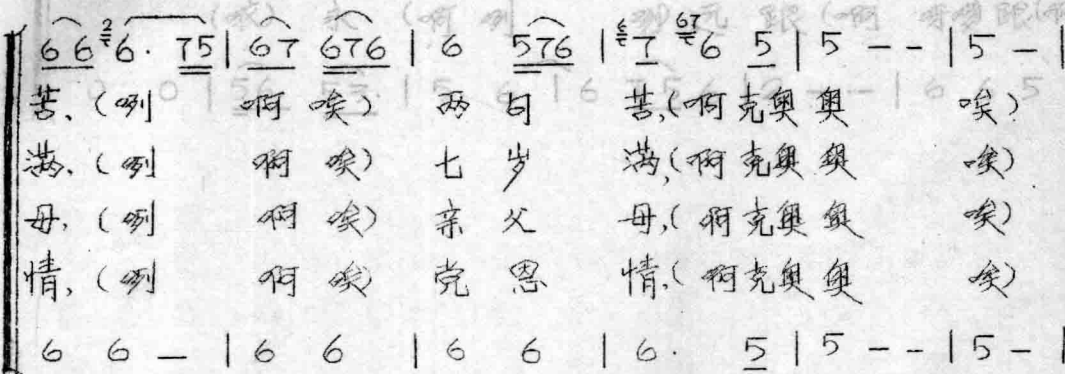 6 6 2 6· 75 | 67 676 | 6 576 | 6 7 67 6 5 | 5 - - | 5 - |
苦,(咧 啊 唉) 两句 苦,(啊克奥奥 唉)
满,(咧 啊 唉) 七岁 满,(啊克奥奥 唉)
母,(咧 啊 唉) 亲父 母,(啊克奥奥 唉)
情,(咧 啊 唉) 党恩 情,(啊克奥奥 唉)
6 6 - | 6 6 | 6 6 | 6· 5 | 5 - - | 5 - |